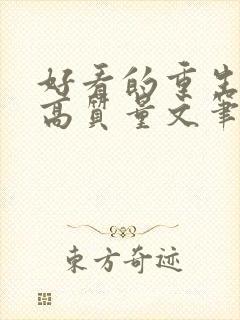 好看的重生
高质量文笔
东方奇迹